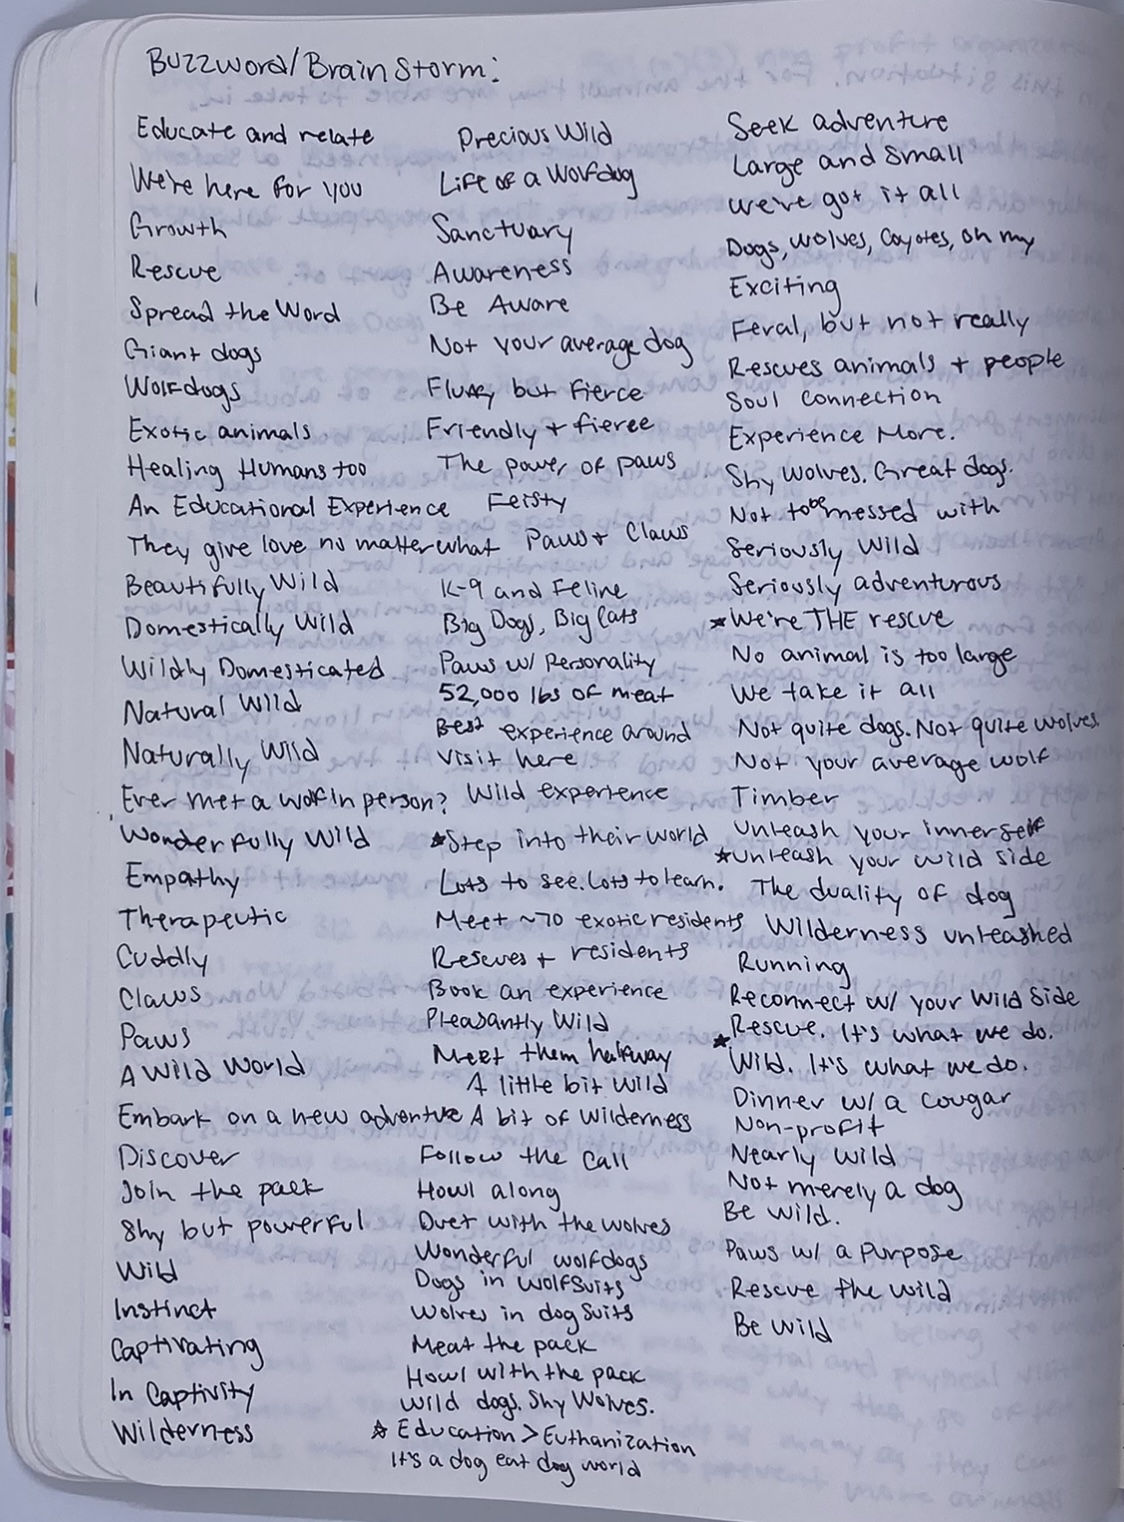 Buzzword/Brain Storm:
Educate and relate
We're here for you
Growth
Rescue
Spread the Word
Giant dogs
Wolfdogs
Exotic animals
Healing Humans too
An Educational Experience
They give love no matter what
Beautifully Wild
Domestically Wild
Wildly Domesticated
Natural Wild
Naturally Wild
Ever met a wolf in person?
Wonderfully Wild
Empathy
Therapeutic
Cuddly
Claws
Paws
A Wild World
Embark on a new adventure
Discover
Join the pack
Shy but powerful
Wild
Instinct
Captivating
In Captivity
Wilderness
Precious Wild
Life of a Wolfdog
Sanctuary
Awareness
Be Aware
Not your average dog
Fluffy but Fierce
Friendly + fierce
The power of paws
Feisty
Paws + Claws
K-9 and Feline
Big Dogs, Big Cats
Paws w/ Personality
52,000 lbs of meat
Best experience around
Visit here
Wild experience
★Step into their world
Lots to see. Lots to learn.
Meet ~70 exotic residents
Rescues + residents
Book an experience
Pleasantly Wild
Meet them halfway
A little bit wild
A bit of wilderness
Follow the call
Howl along
Duet with the wolves
Wonderful wolfdogs
Dogs in wolfsuits
Wolves in dog suits
Meat the pack
Howl with the pack
Wild dogs. Shy Wolves.
☆ Education > Euthanization
It's a dog eat dog world
Seek adventure
Large and Small
we've got it all
Dogs, wolves, Coyotes, oh my
Exciting
Feral, but not really
Rescues animals + people
Soul connection
Experience More.
Shy Wolves. Great dogs.
Not to be messed with
Seriously Wild
Seriously adventurous
★We're THE rescue
No animal is too large
We take it all
Not quite dogs. Not quite wolves
Not your average wolf
Timber
Unleash your inner self
★unleash your wild side
The duality of dog
Wilderness unleashed
Running
Reconnect w/ your Wild Side
★Rescue. It's what we do.
Wild. It's what we do.
Dinner w/ a cougar
Non-profit
Nearly Wild
Not merely a dog
Be wild.
Paws w/ a purpose
Rescue the wild
Be wild